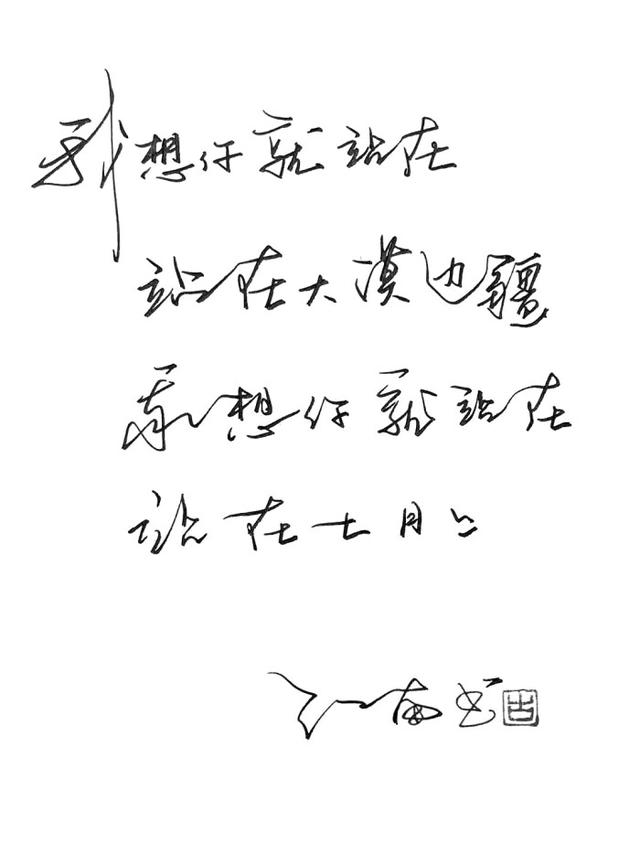 我想你就站在
站在大漠边疆
我想你就站在
站在七月上
江南书